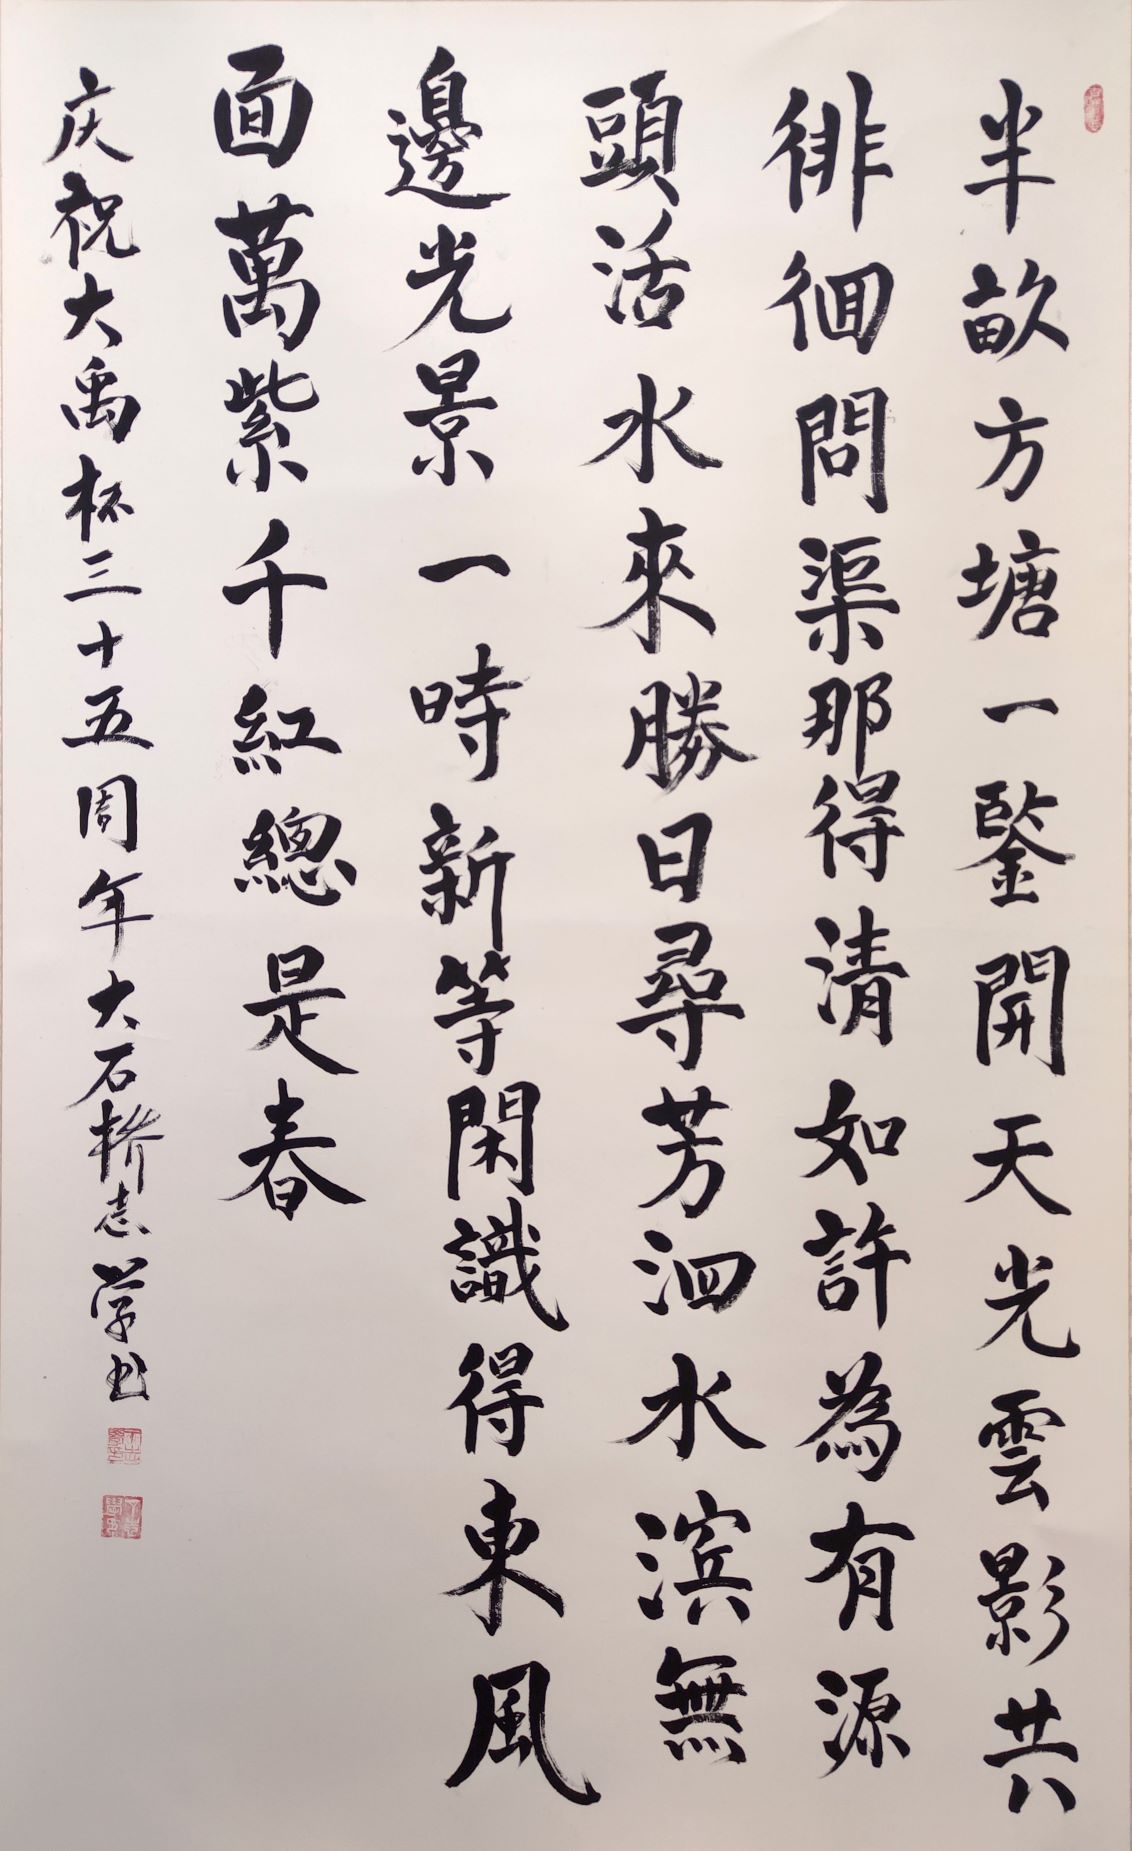 半畝方塘一鑒開天光雲影共
徘徊問渠那得清如許為有源
頭活水來勝日尋芳泗水滨無
邊光景一時新等閑識得東風
面萬紫千紅總是春
庆祝大禹杯三十五周年大石桥志学书